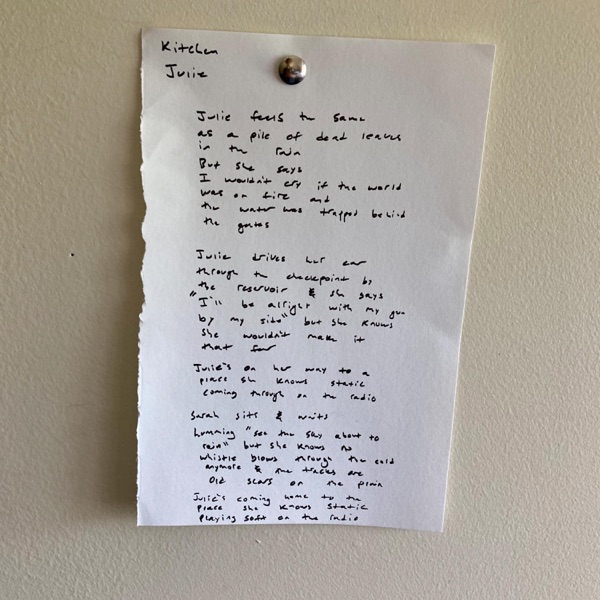 Kitchen
Julie
Julie feels the same
as a pile of dead leaves
in the rain
But she says
I wouldn't cry if the world
was on fire and
the water was trapped behind
the gates
Julie drives her car
through the checkpoint by
the reservoir & she says
"I'll be alright with my gun
by my side" but she knows
she wouldn't make it
that far
Julie's on her way to a
place she knows static
coming through on the radio
Sarah sits & waits
humming "see the sky about to
rain" but she knows no
whistle blows through the cold
anymore & the tracks are
Old scars on the plain
Julie's coming home to the
place she knows static
playing soft on the radio